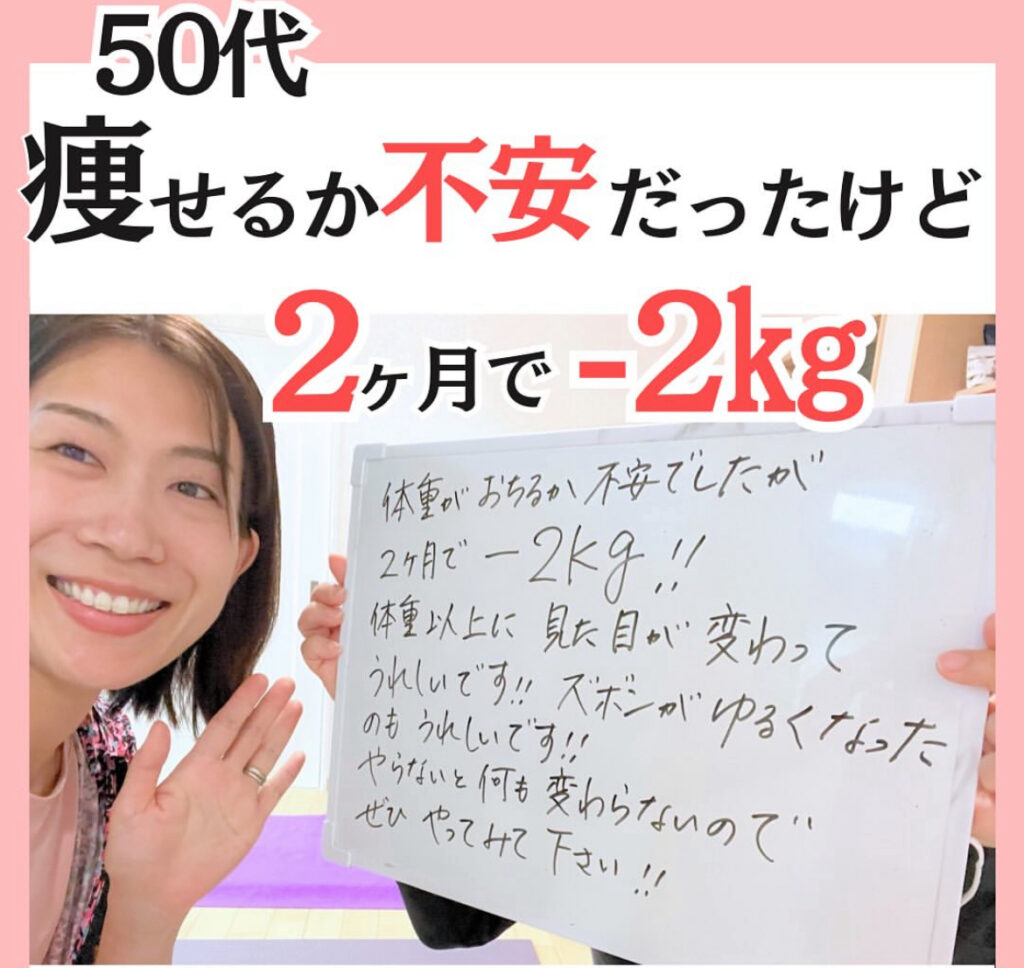 50代
痩せるか不安だったけど
2ヶ月で-2kg
体重がおちるか不安でしたが
2ヶ月で -2kg!!
体重以上に 見た目が 変わって
うれしいです!! ズボンがゆるくなった
のもうれしいです!!
やらないと何も変わらないので
ぜひ やってみて 下さい!!